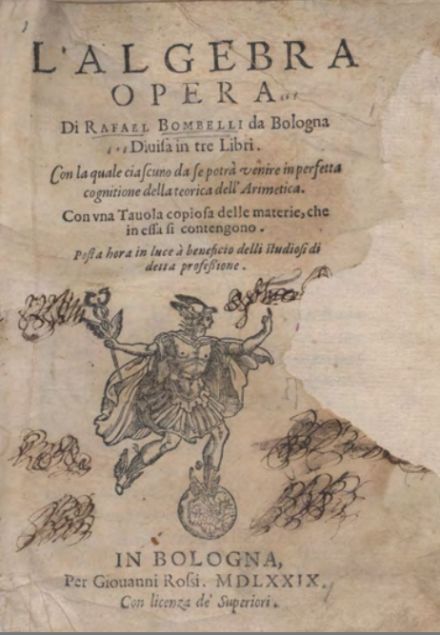 L'ALGEBRA
OPERA
Di RAFAEL BOMBELLI da Bologna
Diuisa in tre Libri.
Con la quale ciascuno da se potrà venire in perfetta
cognitione della teorica dell'Arimetica.
Con vna Tauola copiosa delle materie, che
in essa si contengono.
Posta hora in luce à beneficio delli studiosi di
detta professione.
IN BOLOGNA,
Per Giouanni Rossi. MDLXXIX.
Con licenza de' Superiori.